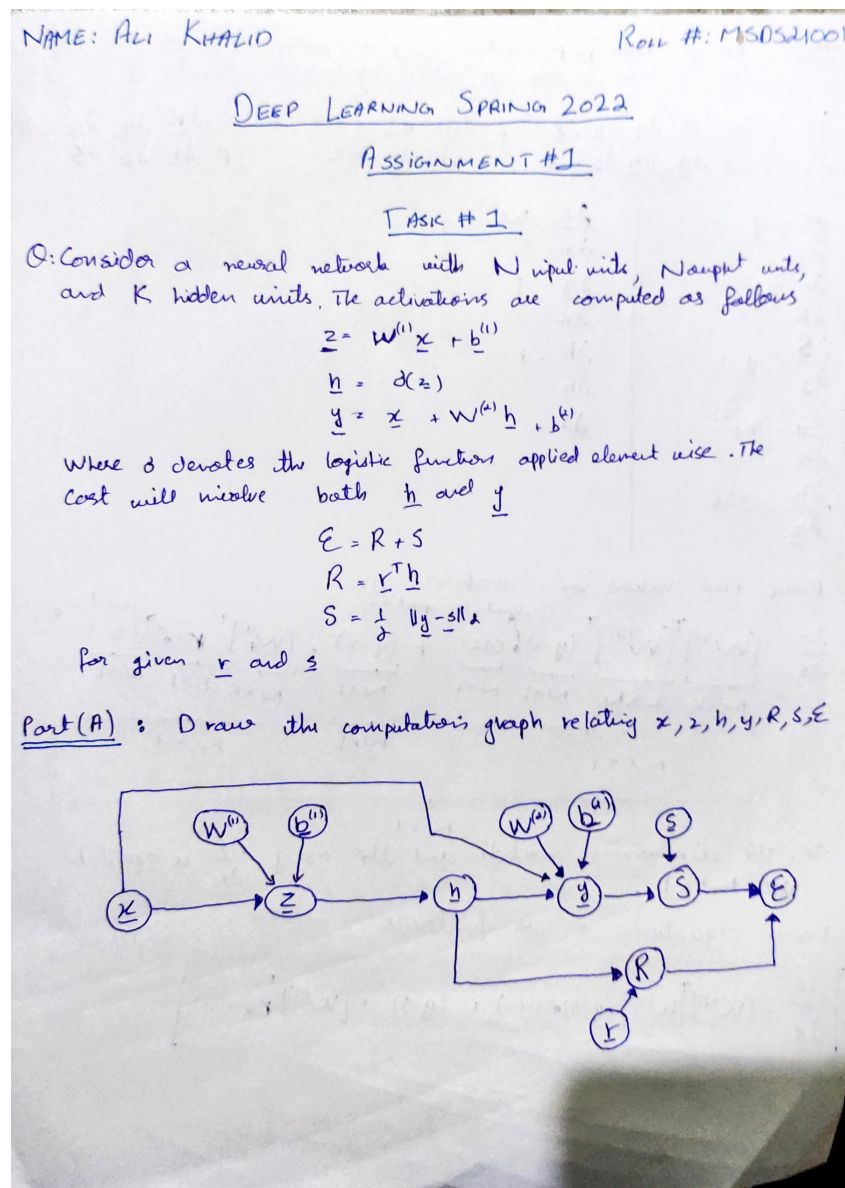 NAME: ALI KHALID
ROLL #: MSDS21001
DEEP LEARNING SPRING 2022
ASSIGNMENT #1
TASK # 1
Q: Consider a neural network with N input units, N output units,
and K hidden units. The activations are computed as follows
z = W⁽¹⁾x + b⁽¹⁾
h = σ(z)
y = x + W⁽²⁾h + b⁽²⁾
Where σ denotes the logistic function applied element wise. The
Cost will involve both h and y
ℰ = R + S
R = rᵀh
S = 1/2 ||y-s||₂
for given r and s
Part(A) : Draw the computations graph relating x, z, h, y, R, S, ℰ
W⁽¹⁾ b⁽¹⁾ W⁽²⁾ b⁽²⁾ s
x z h y S ℰ
R
r